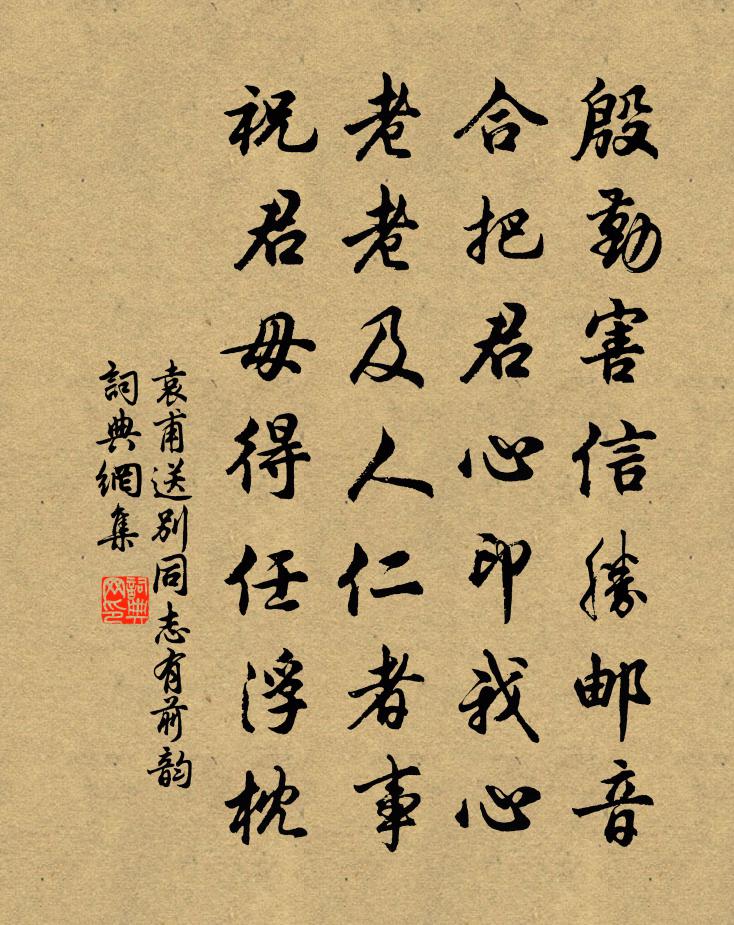 殷勤害信勝邮音
合把君心印我心
老老及人仁者事
祝君毋得任浮枕
袁甫送别同志有前韵
詞典網集
詞典网印